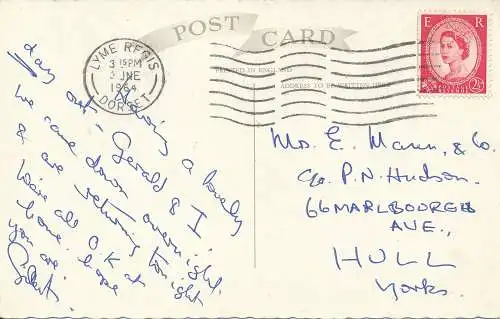 POST CARD
PRINTED IN ENGLAND
ADDRESS TO BE WRITTEN
LYME REGIS
3 15PM
JNE
1964
DORSET
E R
POSTAGE REVENUE
2½D
Having a lovely
day out - Gerald & I
we came down overnight
& are returning tonight
We're all O.K at
home. hope
you are.
Mrs. E. Mann, & Co.
c/o P. N. Hudson.
66 MARLBOUROGH
AVE.,
HULL
Yorks.